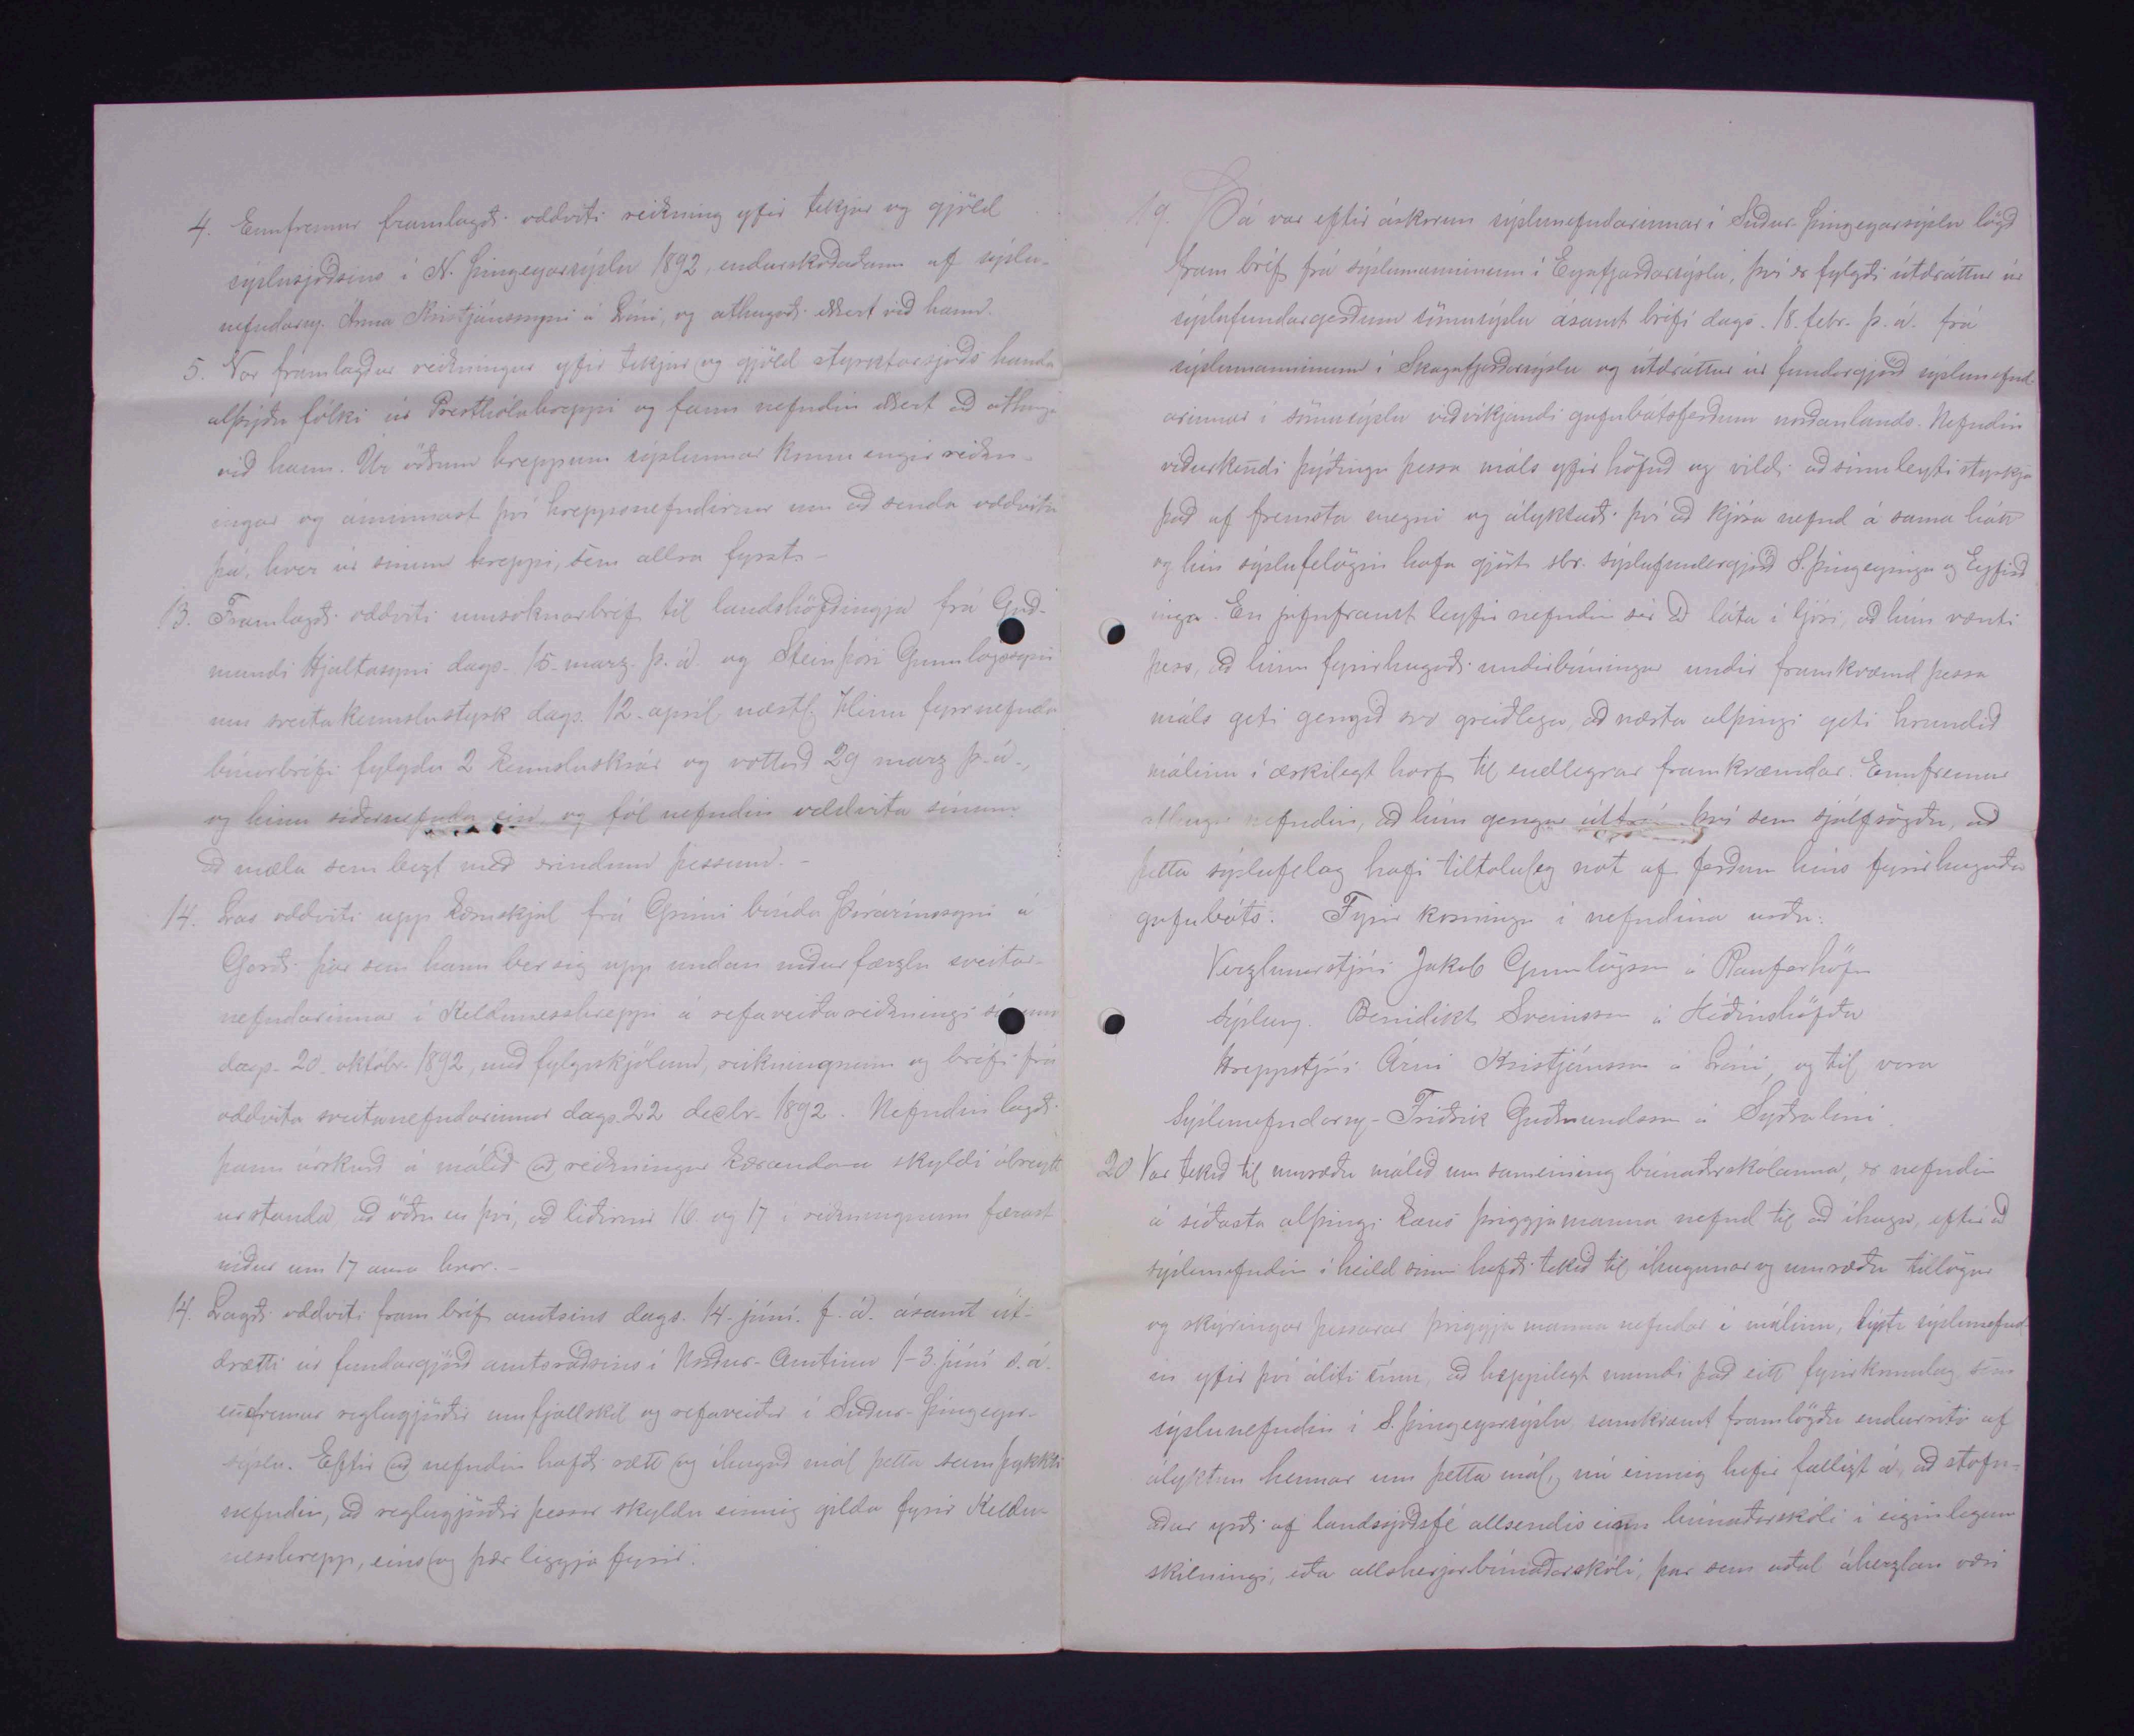 4. Ennfremur framlagði oddviti reikning yfir tekjur og gjöld
sýslusjóðsins í N. Þingeyarsýslu 1892, endurskoðaðann af sýslu-
nefndarm. Árna Kristjánssyni á Lóni, og athugaði ekkert við hann.
5. Var framlagður reikningur yfir tekjur og gjöld styrktarsjóðs handa
alþýðu fólki úr Presthólahreppi og fann nefndin ekkert að athuga
við hann. Úr öðrum hreppum sýslunnar komu engir reikn-
ingar og áminnast því hreppsnefndirnar um að senda oddvita
þá, hver úr sínum hreppi, sem allra fyrst. -
13. Framlagði oddviti umsóknarbréf til landshöfðingja frá Guð-
mundi Hjaltasyni dags. 15. marz. þ. á. og Steinþóri Gunnlögssyni
um sveitakennslustyrk dags. 12. apríl næstl. Hinu fyrrnefnda
bónarbréfi fylgdu 2 kennsluskrár og vottorð 29 marz þ. á.,
og hinu síðarnefnda ein, og fól nefndin oddvita sínum
að mæla sem bezt með erindum þessum. -
14. Las oddviti upp kæruskjal frá Grími bónda Þórarinssyni á
Garði þar sem hann ber sig upp undan niðurfærzlu sveitar-
nefndarinnar í Kelduneshreppi á refaveiðareikningi sínum
dags. 20. októbr. 1892, með fylgiskjölum, reikningnum og bréfi frá
oddvita sveitanefndarinnar dags. 22 decbr. 1892. Nefndin lagði
þann úrskurð á málið að reikningur kærandans skyldi óbreytt
ur standa að öðru en því, að liðirnir 16 og 17 í reikningnum færast
niður um 17 aura hvor. -
14. Lagði oddviti fram bréf amtsins dags. 14. júní. f. á. ásamt út-
drætti úr fundargjörð amtsráðsins í Norður-Amtinu 1-3. júní s. á.
ennfremur reglugjörðir um fjallskil og refaveiðar í Suður-Þingeyar-
sýslu. Eftir að nefndin hafði rætt og íhugað mál þetta samþykkti
nefndin, að reglugjörðir þessar skyldu einnig gilda fyrir Keldu-
nesshrepp, eins og þær liggja fyrir.
19. Þá var eftir áskorun sýslunefndarinnar í Suður-Þingeyarsýslu lögð
fram bréf frá sýslumanninum í Eyjafjarðarsýslu, því er fylgdi útdráttur úr
sýslufundargerðum sömu sýslu ásamt bréfi dags. 18. febr. þ. á. frá
sýslumanninum í Skagafjarðarsýslu og útdráttur úr fundargjörð sýslunefnd-
arinnar í sömu sýslu viðvíkjandi gufubátsferðum norðanlands. Nefndin
viðurkenndi þýðingu þessa máls yfir höfuð og vildi að sínu leyti styrkja
það af fremsta megni og ályktaði því að kjósa nefnd á sama hátt
og hin sýslufélögin hafa gjört sbr. sýslufundargjörð S. Þingeyinga og Eyfirð
inga. En jafnframt leyfir nefndin sér að láta í ljósi, að hún vænti
þess, að hinn fyrirhugaði undirbúningur undir framkvæmd þessa
máls geti gengið svo greiðlega, að næsta alþingi geti hrundið
málinu í æskilegt horf til endlegrar framkvæmdar. Ennfremur
athugar nefndin, að hún gengur út frá því sem sjálfsögðu, að
þetta sýslufélag hafi tiltöluleg not af ferðum hins fyrirhugaða
gufubáts. Fyrir kosningu í nefndina urðu:
Verzlunarstjóri Jakob Gunnlögsson á Raufarhöfn
Sýslum. Benidikt Sveinsson á Héðinshöfða
Hreppstjóri Árni Kristjánsson á Lóni, og til vara
Sýslunefndarm. Friðrik Guðmundsson á Syðralóni.
20 Var tekið til umræðu málið um sameining búnaðarskólanna, er nefndin
á síðasta alþingi kaus þriggjamanna nefnd til að íhuga, eftir að
sýslunefndin í heild sinni hafði tekið til íhugunar og umræðu tillögur
og skýringar þessarar þriggja manna nefndar í málinu, lýsti sýslunefnd
in yfir því áliti sínu, að heppilegt mundi það eitt fyrirkomulag sem
sýslunefndin í S. Þingeyarsýslu, samkvæmt framlögðu endurriti af
ályktun hennar um þetta mál, nú einnig hefir fallizt á, að stofn-
aður yrði af landssjóðsfé allsendis einn búnaðarskóli í eiginlegum
skilningi, eða allsherjarbúnaðarskóli, þar sem aðal áherzlan væri